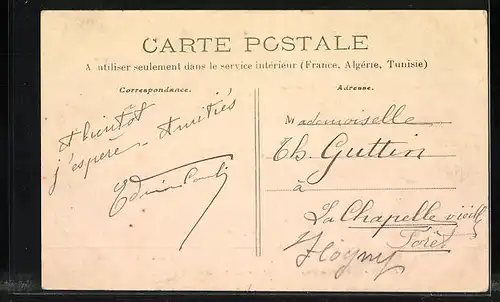 CARTE POSTALE
A utiliser seulement dans le service intérieur (France, Algérie, Tunisie)
Correspondance.
A bientôt
j'espère. Amitiés
Adresse.
Mademoiselle
Th. Guttin
à
La Chapelle vieille
Forêt
Flogny